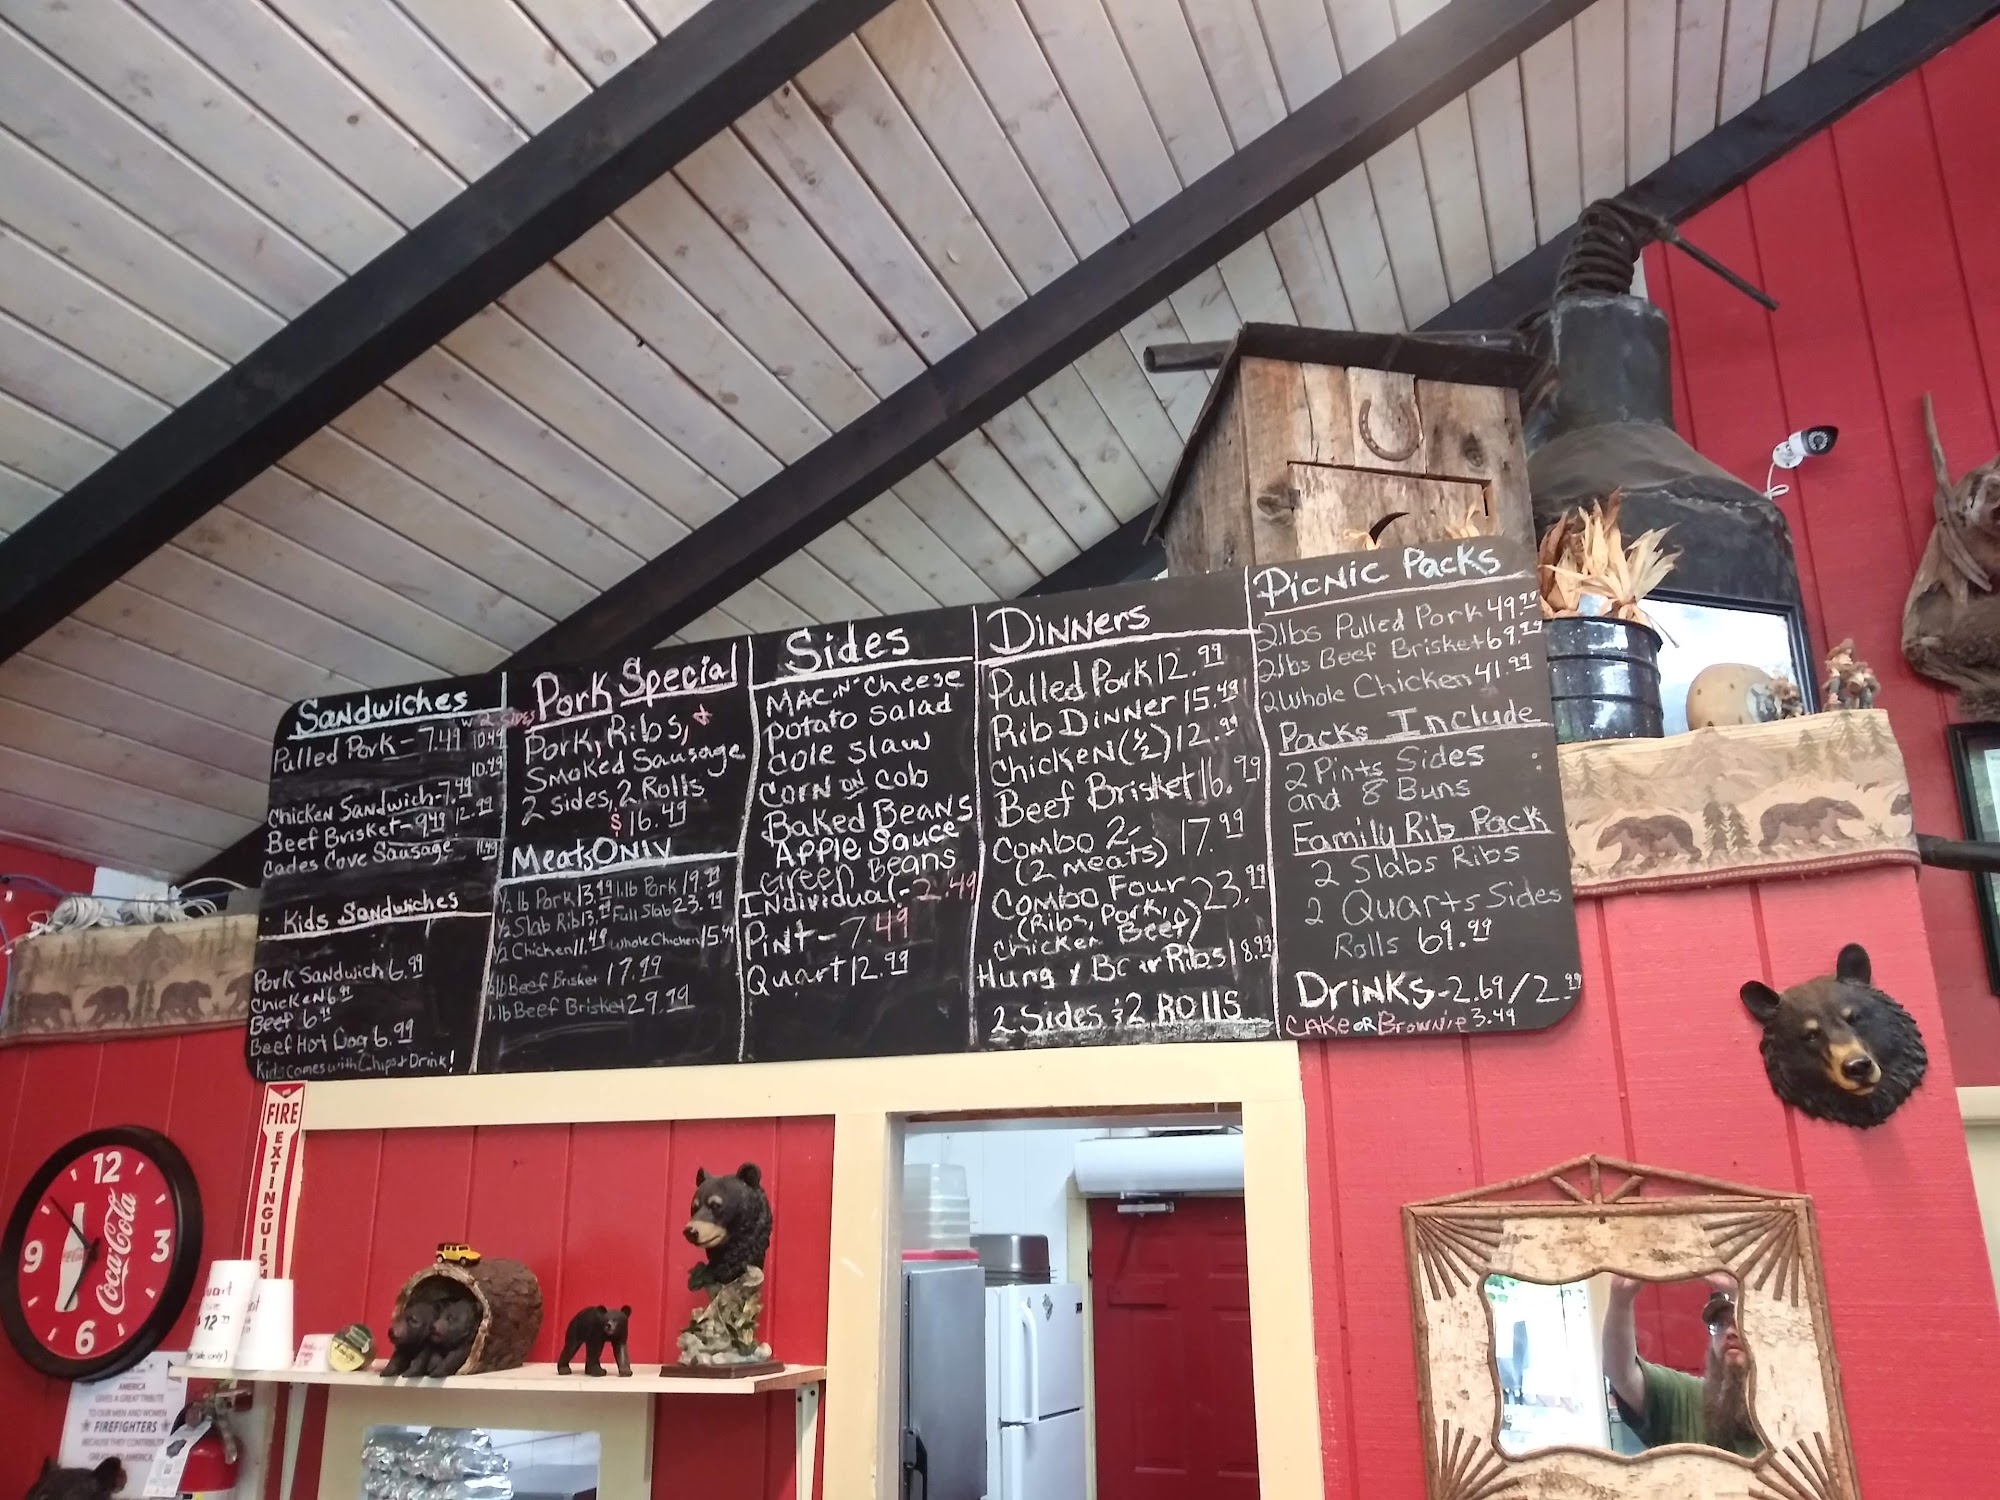 Sandwiches
w 2 sides
Pulled Pork - 7.49 10.49
10.49
Chicken Sandwich - 7.49
Beef Brisket - 9.49 12.99
Cades Cove Sausage 11.49
Kids Sandwiches
Pork Sandwich 6.99
Chicken 6.99
Beef 6.99
Beef Hot Dog 6.99
Kids comes with Chips & Drink!
Pork Special
Pork, Ribs, &
Smoked Sausage
2 sides, 2 Rolls
$ 16.49
Meats Only
½ lb Pork 13.49 1.lb Pork 19.99
½ Slab Rib 13.99 Full Slab 23.99
½ Chicken 11.49 Whole Chicken 15.49
lb Beef Brisket 17.99
1.lb Beef Brisket 29.99
Sides
MAC "N" Cheese
Potato Salad
Cole Slaw
Corn on Cob
Baked Beans
Apple Sauce
Green Beans
Individual - 2.49
Pint - 7.49
Quart 12.99
Dinners
Pulled Pork 12.99
Rib Dinner 15.49
Chicken (½) 12.99
Beef Brisket 16.99
Combo 2 - 17.99
(2 Meats)
Combo Four 23.99
(Ribs, Pork,
Chicken Beef)
Hungry Bear Ribs 18.99
2 Sides & 2 Rolls
Picnic Packs
2.lbs Pulled Pork 49.99
2.lbs Beef Brisket 69.99
2 Whole Chicken 41.99
Packs Include
2 Pints Sides
and 8 Buns
Family Rib Pack
2 Slabs Ribs
2 Quarts Sides
Rolls 69.99
Drinks - 2.69 / 2.99
Cake or Brownie 3.49
FIRE
EXTINGUISH
12
3
6
9
Coca-Cola
12
AMERICA
GIVES A GREAT TRIBUTE
TO OUR MEN AND WOMEN
FIREFIGHTERS
BECAUSE THEY CONTRIBUTE